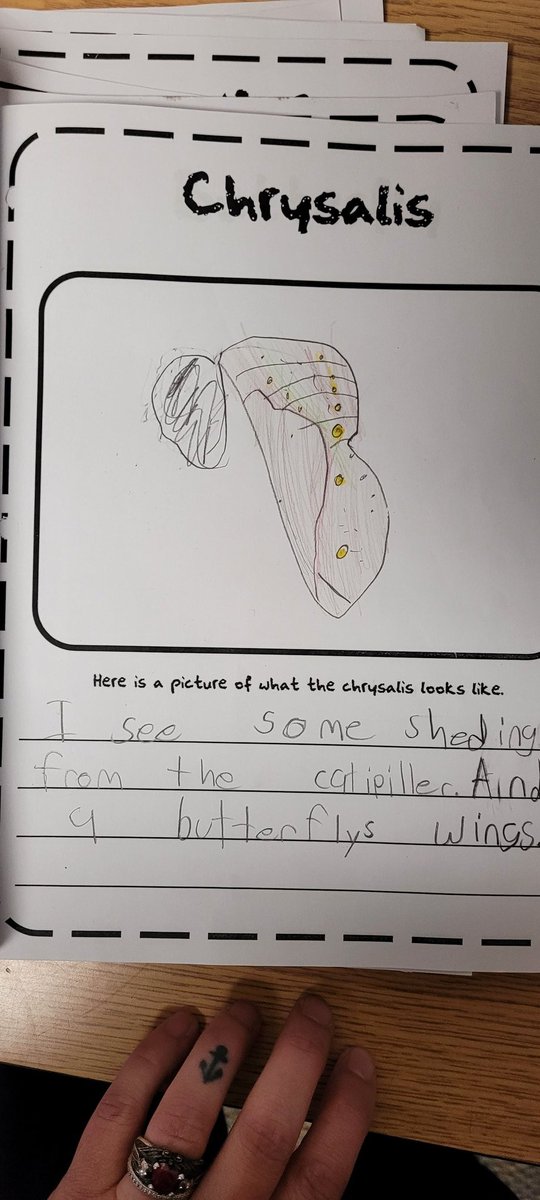 Chrysalis
Here is a picture of what the chrysalis looks like.
I see some sheding
from the catipiller. Aind
a butterflys wings.